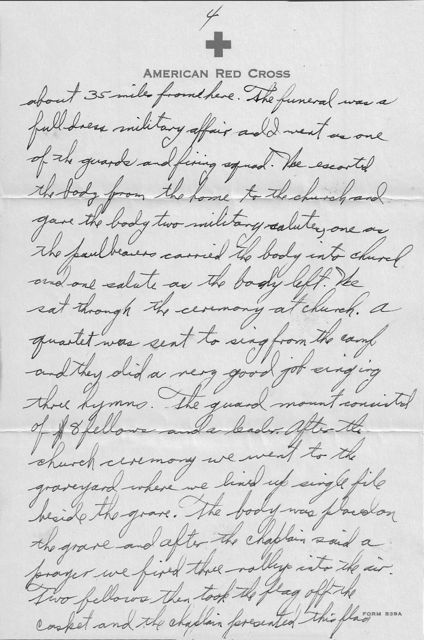 4
AMERICAN RED CROSS
about 35 miles from here. The funeral was a
full dress military affair and I went as one
of the guards and firing squad. We escorted
the body from the home to the church and
gave the body two military salutes, one as
the paulbearers carried the body into church
and one salute as the body left. We
sat through the ceremony at church. A
quartet was sent to sing from the camp
and they did a very good job singing
three hymns. The guard mount consisted
of 8 fellows and a leader. After the
church ceremony we went to the
graveyard where we lined up single file
beside the grave. The body was placed on
the grave and after the chaplain said a
prayer we fired three volleys into the air.
Two fellows then took the flag off the
casket and the chaplain presented this flag
FORM 539A